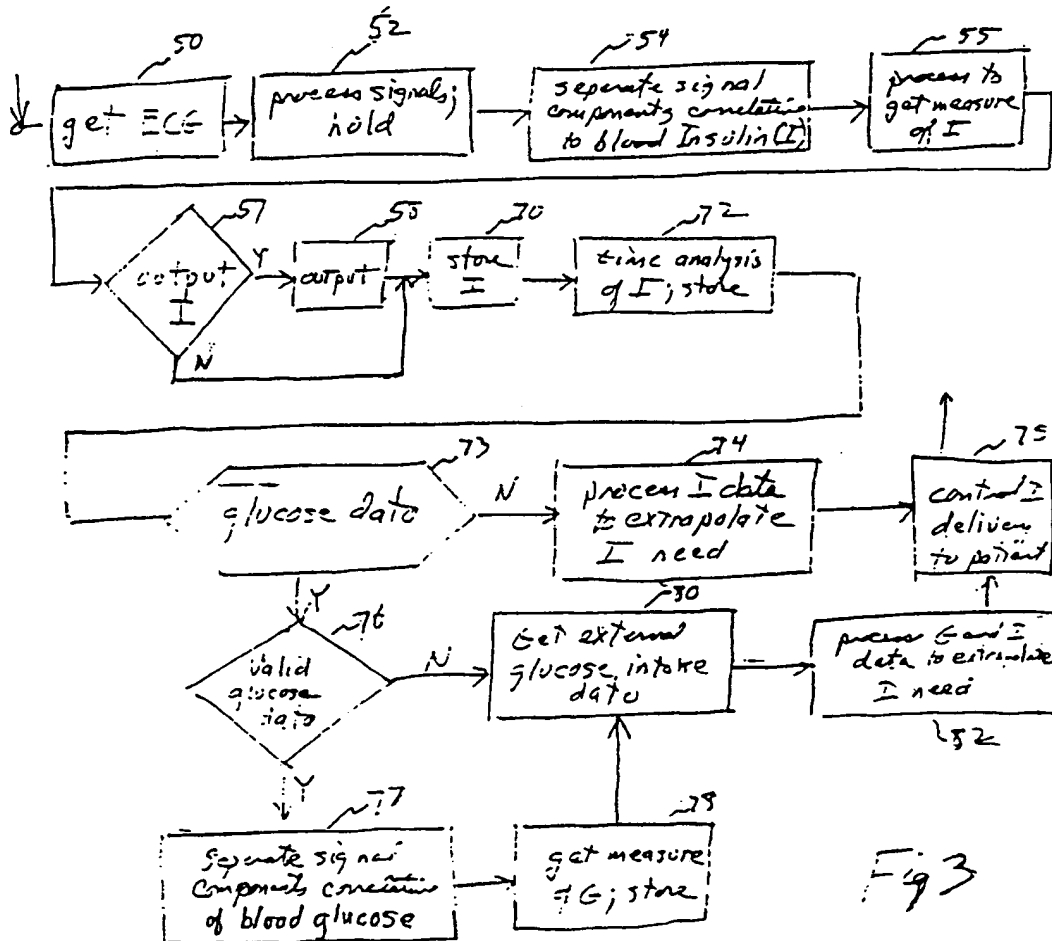 50
52
54
55
get ECG
process signals;
hold
separate signal
components correlative
to blood Insulin (I)
process to
get measure
of I
57
58
70
72
output
I
Y
N
output
store
I
time analysis
of I; store
73
74
75
glucose data
N
Y
process I data
to extrapolate
I need
control I
delivery
to patient
76
80
valid
glucose
data
N
Y
Get external
glucose intake
data
process G and I
data to extrapolate
I need
82
77
78
separate signal
components correlative
of blood glucose
get measure
of G; store
Fig 3